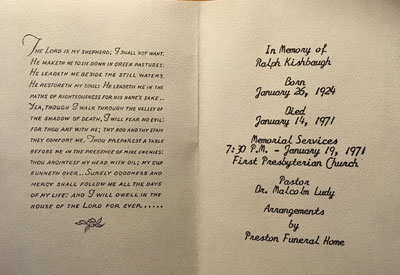 The Lord is my shepherd; I shall not want.
He maketh me to lie down in green pastures:
He leadeth me beside the still waters.
He restoreth my soul: He leadeth me in the
paths of righteousness for his name's sake..
Yea, though I walk through the valley of
the shadow of death, I will fear no evil:
for thou art with me; thy rod and thy staff
they comfort me. Thou preparest a table
before me in the presence of mine enemies:
thou anointest my head with oil; my cup
runneth over.. Surely goodness and
mercy shall follow me all the days
of my life: and I will dwell in the
house of the Lord for ever.....
In Memory of
Ralph Kishbaugh
Born
January 26, 1924
Died
January 14, 1971
Memorial Services
7:30 P.M. - January 19, 1971
First Presbyterian Church
Pastor
Dr. Malcolm Ludy
Arrangements
by
Preston Funeral Home